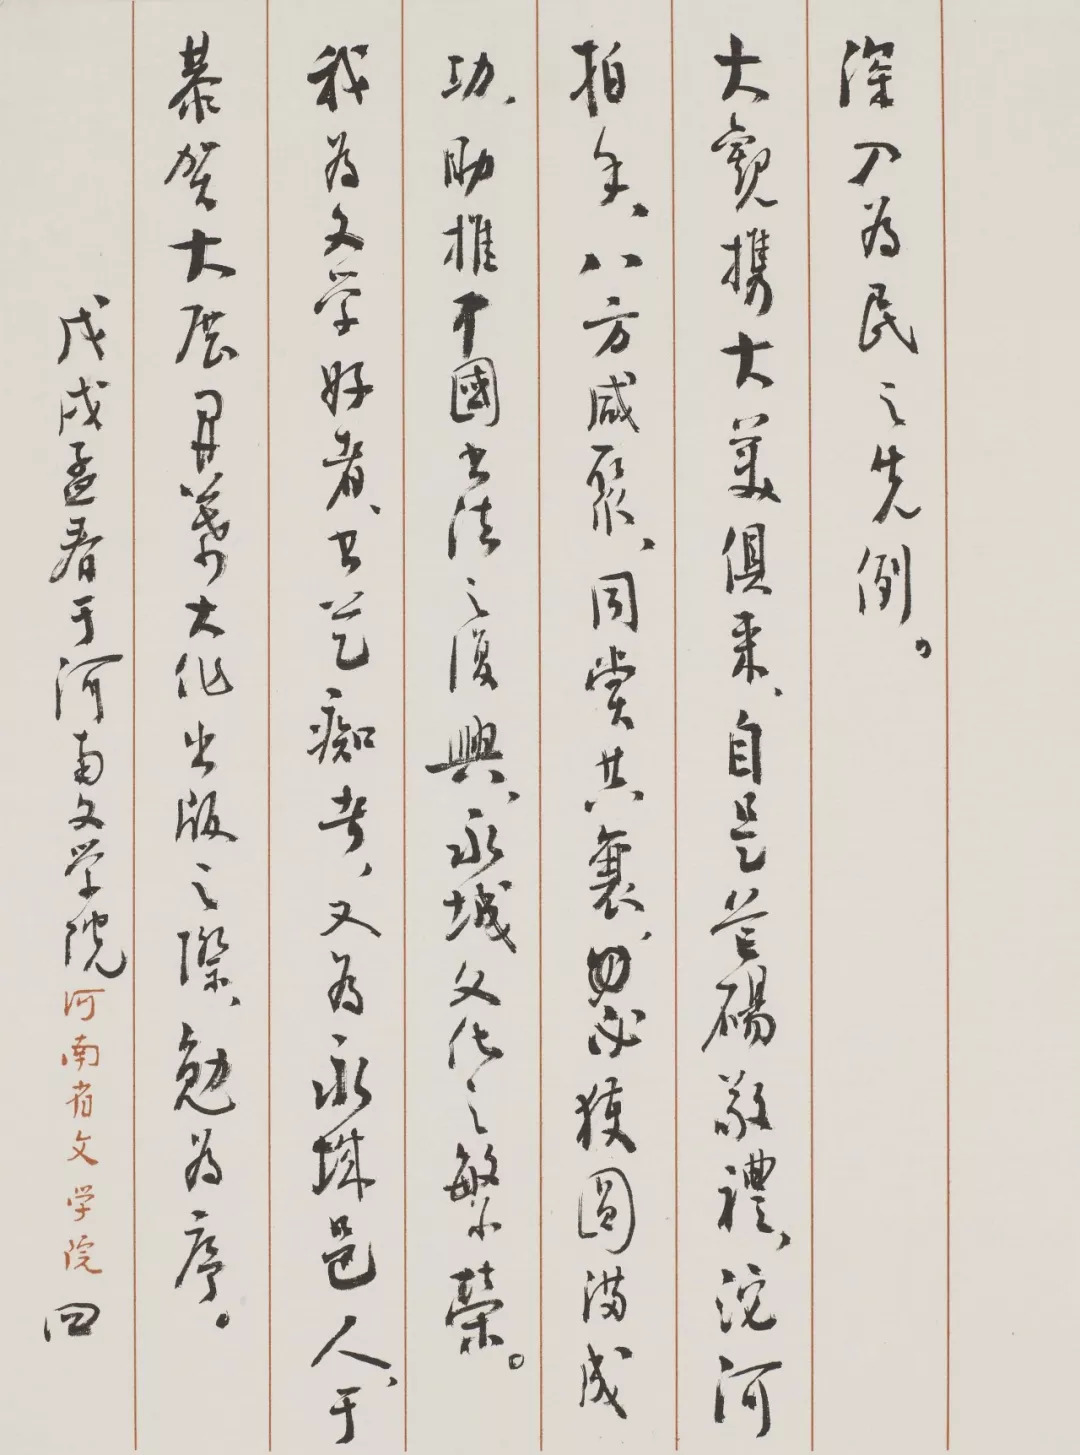 深入为民之先例。
大觀携大美俱来、自是芒碭敬禮、沱河
拍手、八方咸聚、同赏共襄、必獲圓满成
功、助推中國书法之復興、永城文化之繁榮。
我为文学好者、书艺痴者、又为永城邑人、于
恭贺大展开幕大作出版之際、勉为序。
戊戌孟春于河南文学院 河南省文学院 四